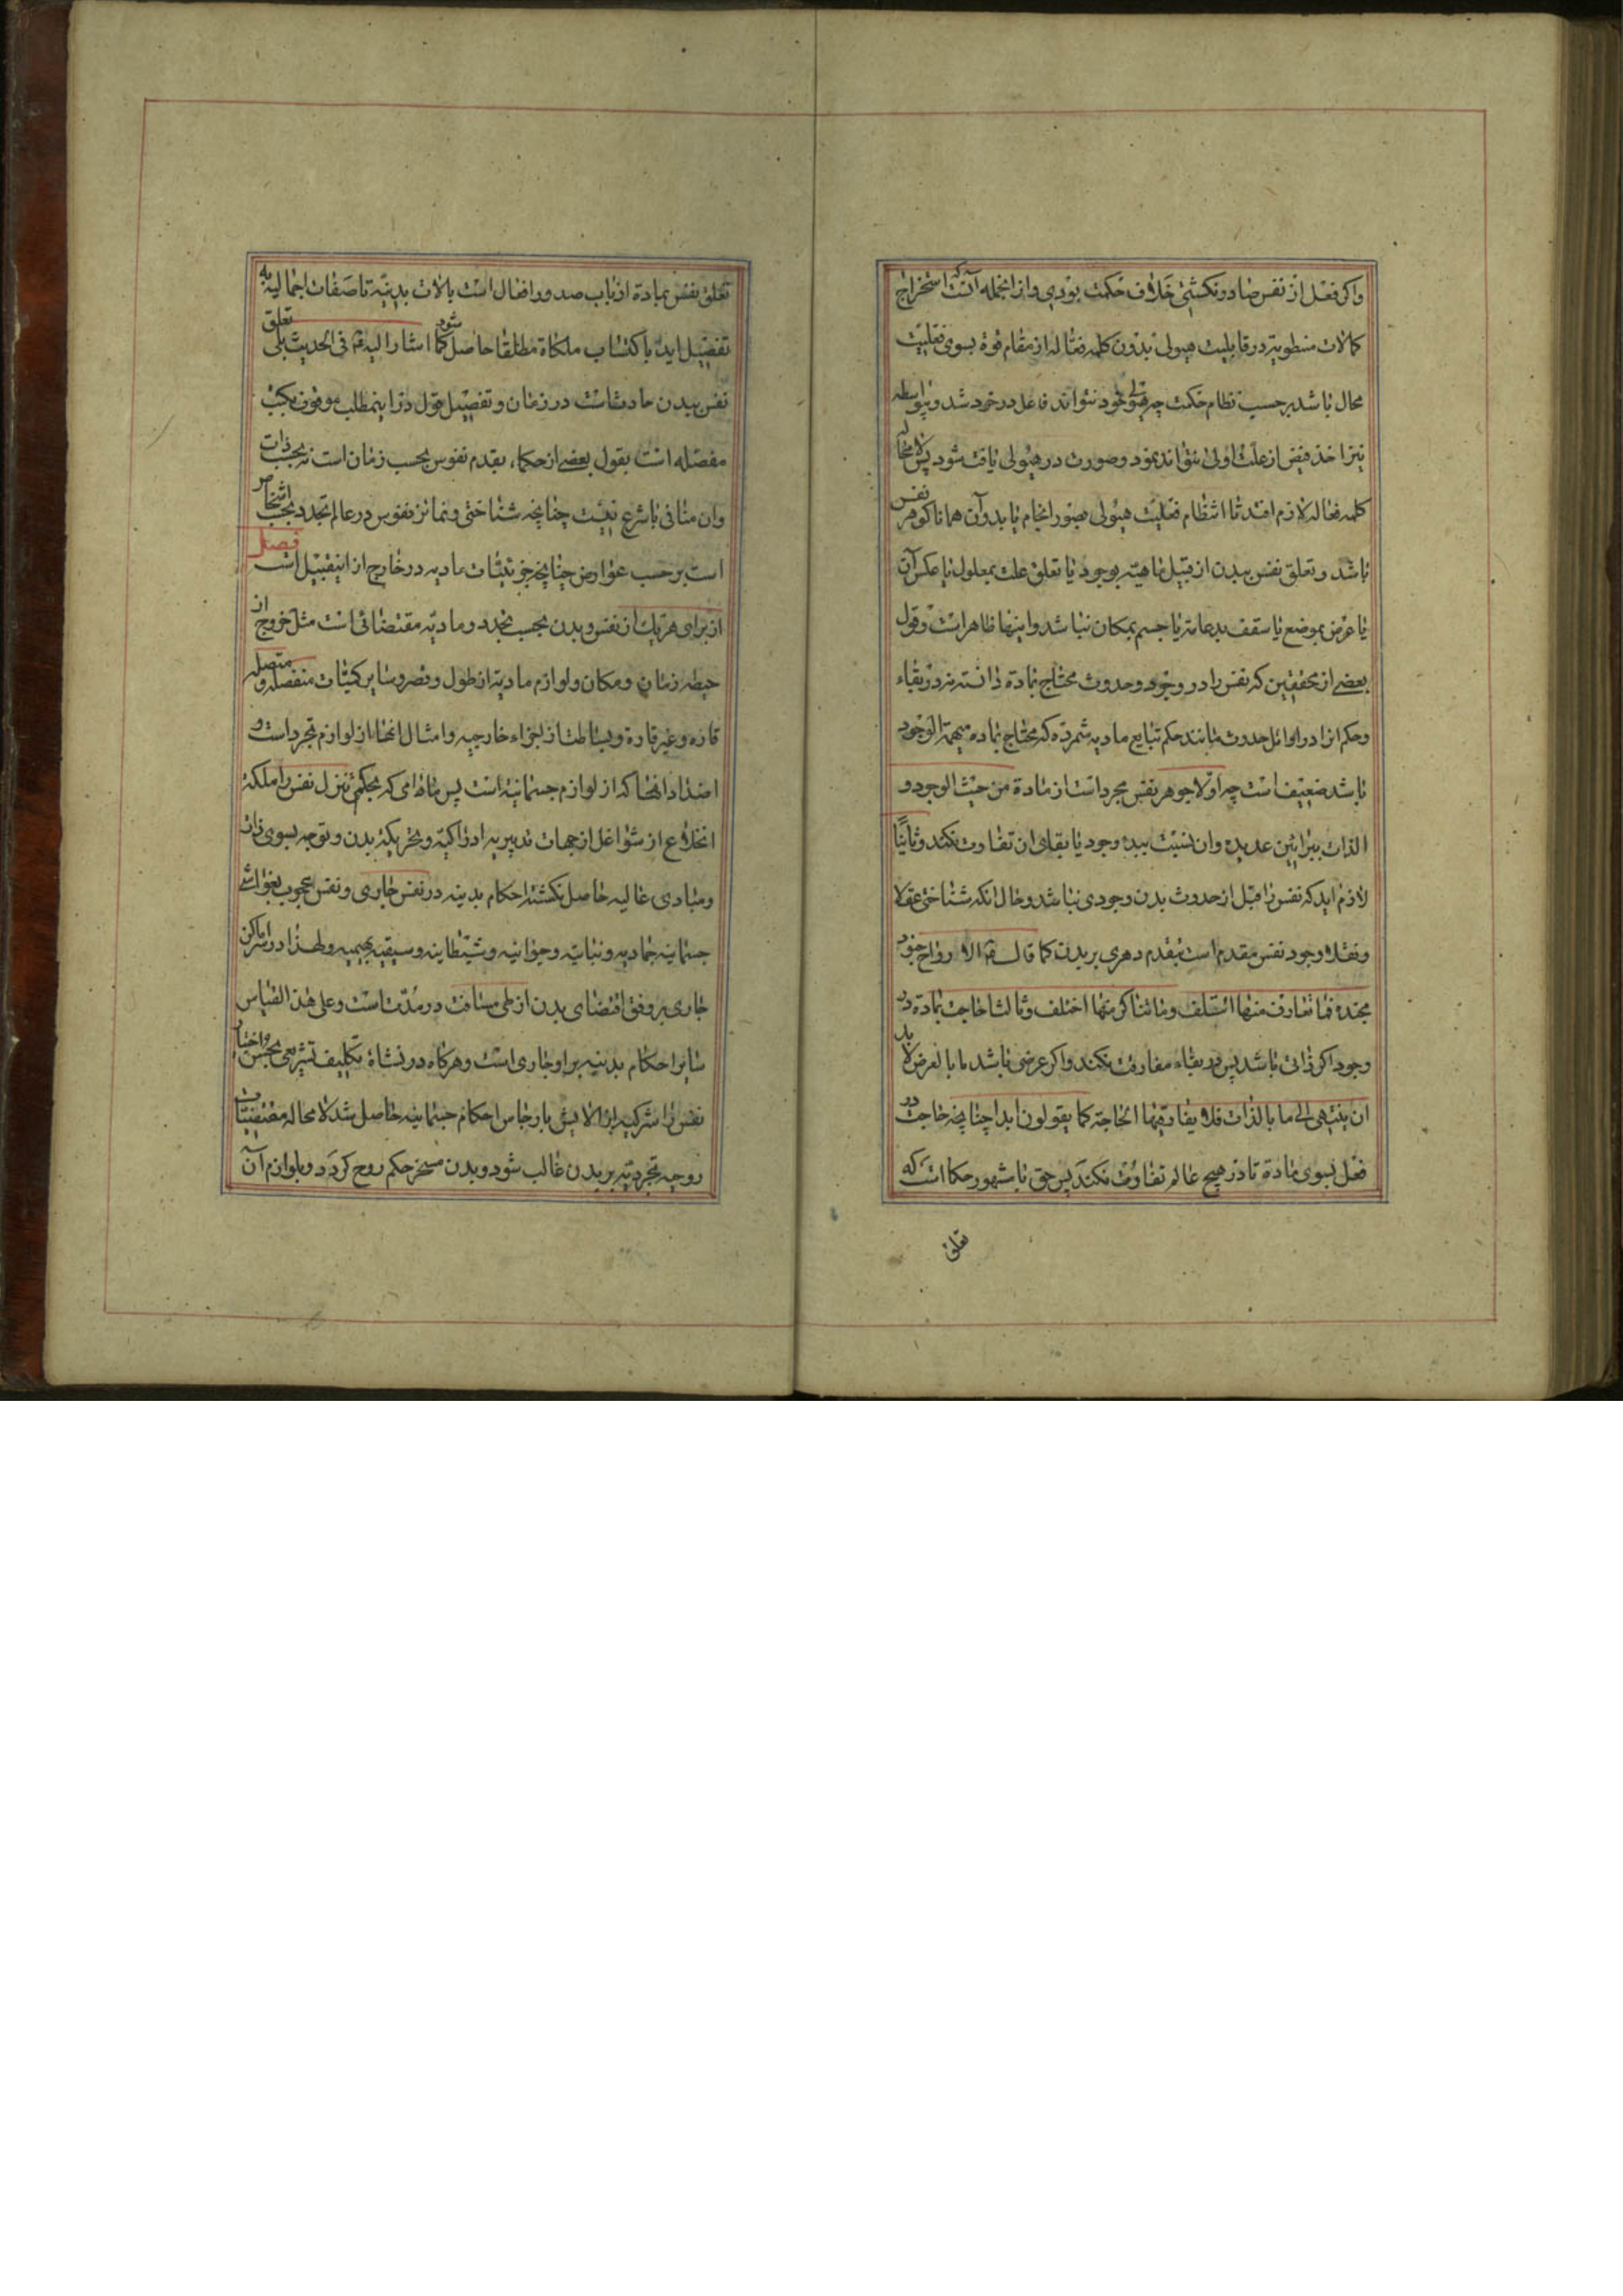 واکر فعل از نفس صادر نکشتی خلاف حکمت بودی و از انجمله آنست که استخراج
کمالات منطویه در قابلیت هیولی بدون کلمه فعاله از مقام قوة بسوی فعلیت
محال باشد بر حسب نظام حکمت چه هیولی خود نتواند فاعل در خود شد و بیواسطه
نیز اخذ فیض از علت اولی نتواند نمود و صورت در هیولی یافت شود پس لا محاله
کلمه فعاله لازم افتد تا انتظام فعلیت هیولی بصور انجام یابد و آن همانا کوهر نفس
باشد و تعلق نفس ببدن از قبیل ماهیة بوجود یا تعلق علت بمعلول یا عکس آن
یا عرض بموضع یا سقف بدعامة یا جسم بمکان نباشد و اینها ظاهر است و قول
بعضی از محققین که نفس را در وجود و حدوث محتاج بمادة دانسته نه در بقاء
و حکم انرا در اوائل حدوث مانند حکم تبایع مادیه شمرده که محتاج بماده مبهمة الوجود
باشد ضعیف است چه اولا جوهر نفس مجرد است از مادة من حیث الوجود و
الذات ببراهین عدیده و ان نسبت ببدء وجود یا بقای ان تفاوت نکند و ثانیًا
لازم اید که نفس را قبل از حدوث بدن وجودی نباشد و حال انکه شناختی عقلا
و نقلا وجود نفس مقدم است بتقدم دهری بر بدن کما قال ع الارواح جنود
مجندة فما تعارف منها ائتلف و ما تناکر منها اختلف و ثالثا حاجت بمادة در
وجود اکر ذاتی باشد پس در بقاء مفارقت نکند و اکر عرضی باشد ما بالعرض لا بد
ان ینتهی الی ما بالذات فلا یفارقهما الحاجة کما یقولون ابدا چنانچه حاجت در
فعل بسوی مادة تا در هیچ عالم تفاوت نکند پس حق با مشهور حکما است که
تعلق
تعلق نفس بمادة از باب صدور افعال است بالات بدنیة تا صفات اجمالیة به
تفصیل اید یا اکتساب ملکاة مطلقا حاصل شود کما اشار الیه ع فی الحدیث بلی تعلق
نفس ببدن حادث است در زمان و تفصیل قول در اینمطلب موقوف بکتب
مفصله است بقول بعضی از حکماء تقدم نفوس بحسب زمان است نه بحسب ذات
وان منافی با شرع نیست چنانچه شناختی و تمائز نفوس در عالم تجدد بحسب اشخاص
است بر حسب عوارض چنانچه جزئیات مادیه در خارج از اینقبیل است فصل
از برای هر یک از نفس و بدن بحسب تجدد و مادیة مقتضائی است مثل خروج از
حیطه زمان و مکان و لوازم مادیة از طول و قصر و سایر کمیات منفصله و متصله
قاره و غیر قارة و بساطت از اجزاء خارجیه و امثال انها از لوازم تجرد است و
اضداد انها که از لوازم جسمانیة است پس مادامی که بحکم تنزل نفس را ملکة
انخلاع از شواغل از جهات تدبیریه ادراکیة و تحریکیة بدن و توجه بسوی ذات
و مبادی عالیه حاصل نکشته احکام بدنیه در نفس جاری و نفس محجوب بغواشی
جسمانیه جمادیه و نباتیة و حیوانیه و شیطانیه و سبعیه بهیمیه و لهذا در اماکن
جاری بر وفق اقتضای بدن از طی مسافت در مدت است و علی هذا القیاس
سایر احکام بدنیه بر او جاری است و هر کاه در نشاة تکلیف تشریعی بحسن اختیار
نفس را تزکیه از الایش بارجاس احکام جسمانیه حاصل شد لا محاله مقتضیات
روحیه تجردیة بر بدن غالب شود و بدن مسخر حکم روح کردد و بلوازم آن